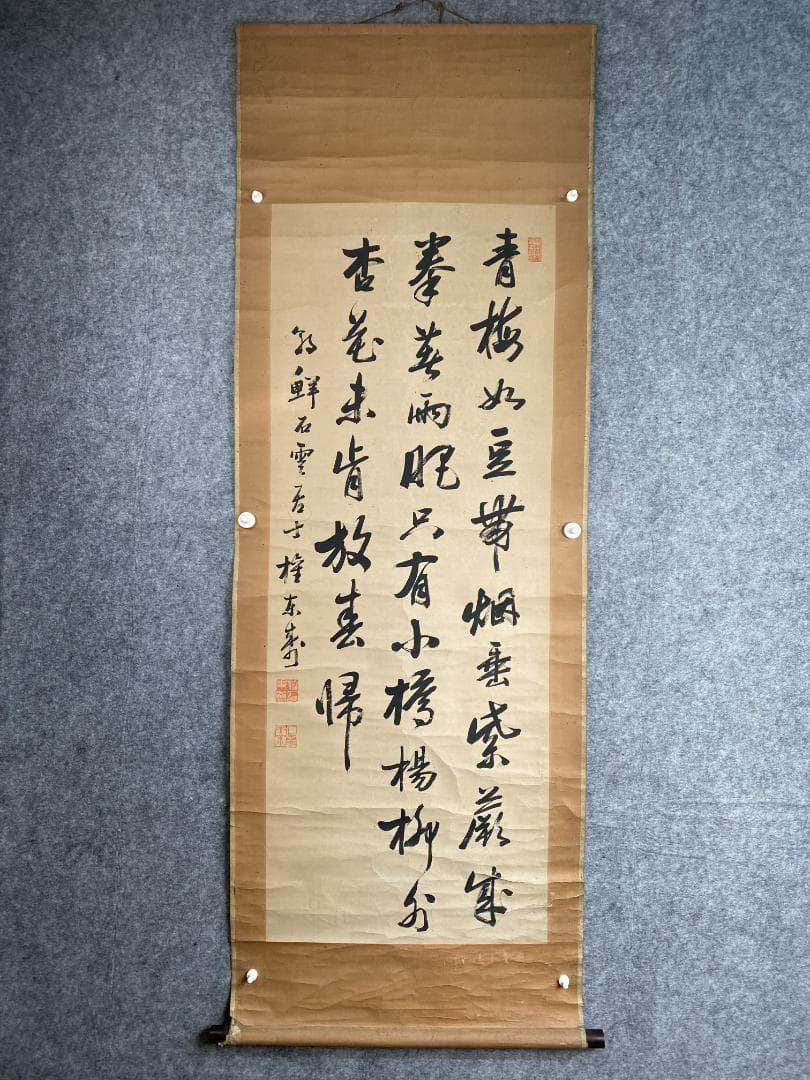 青梅如豆帶烟垂紫蕨成
拳春雨肥只有小橋楊柳外
杏花未肯放春歸
朝鮮石雲居士權東壽